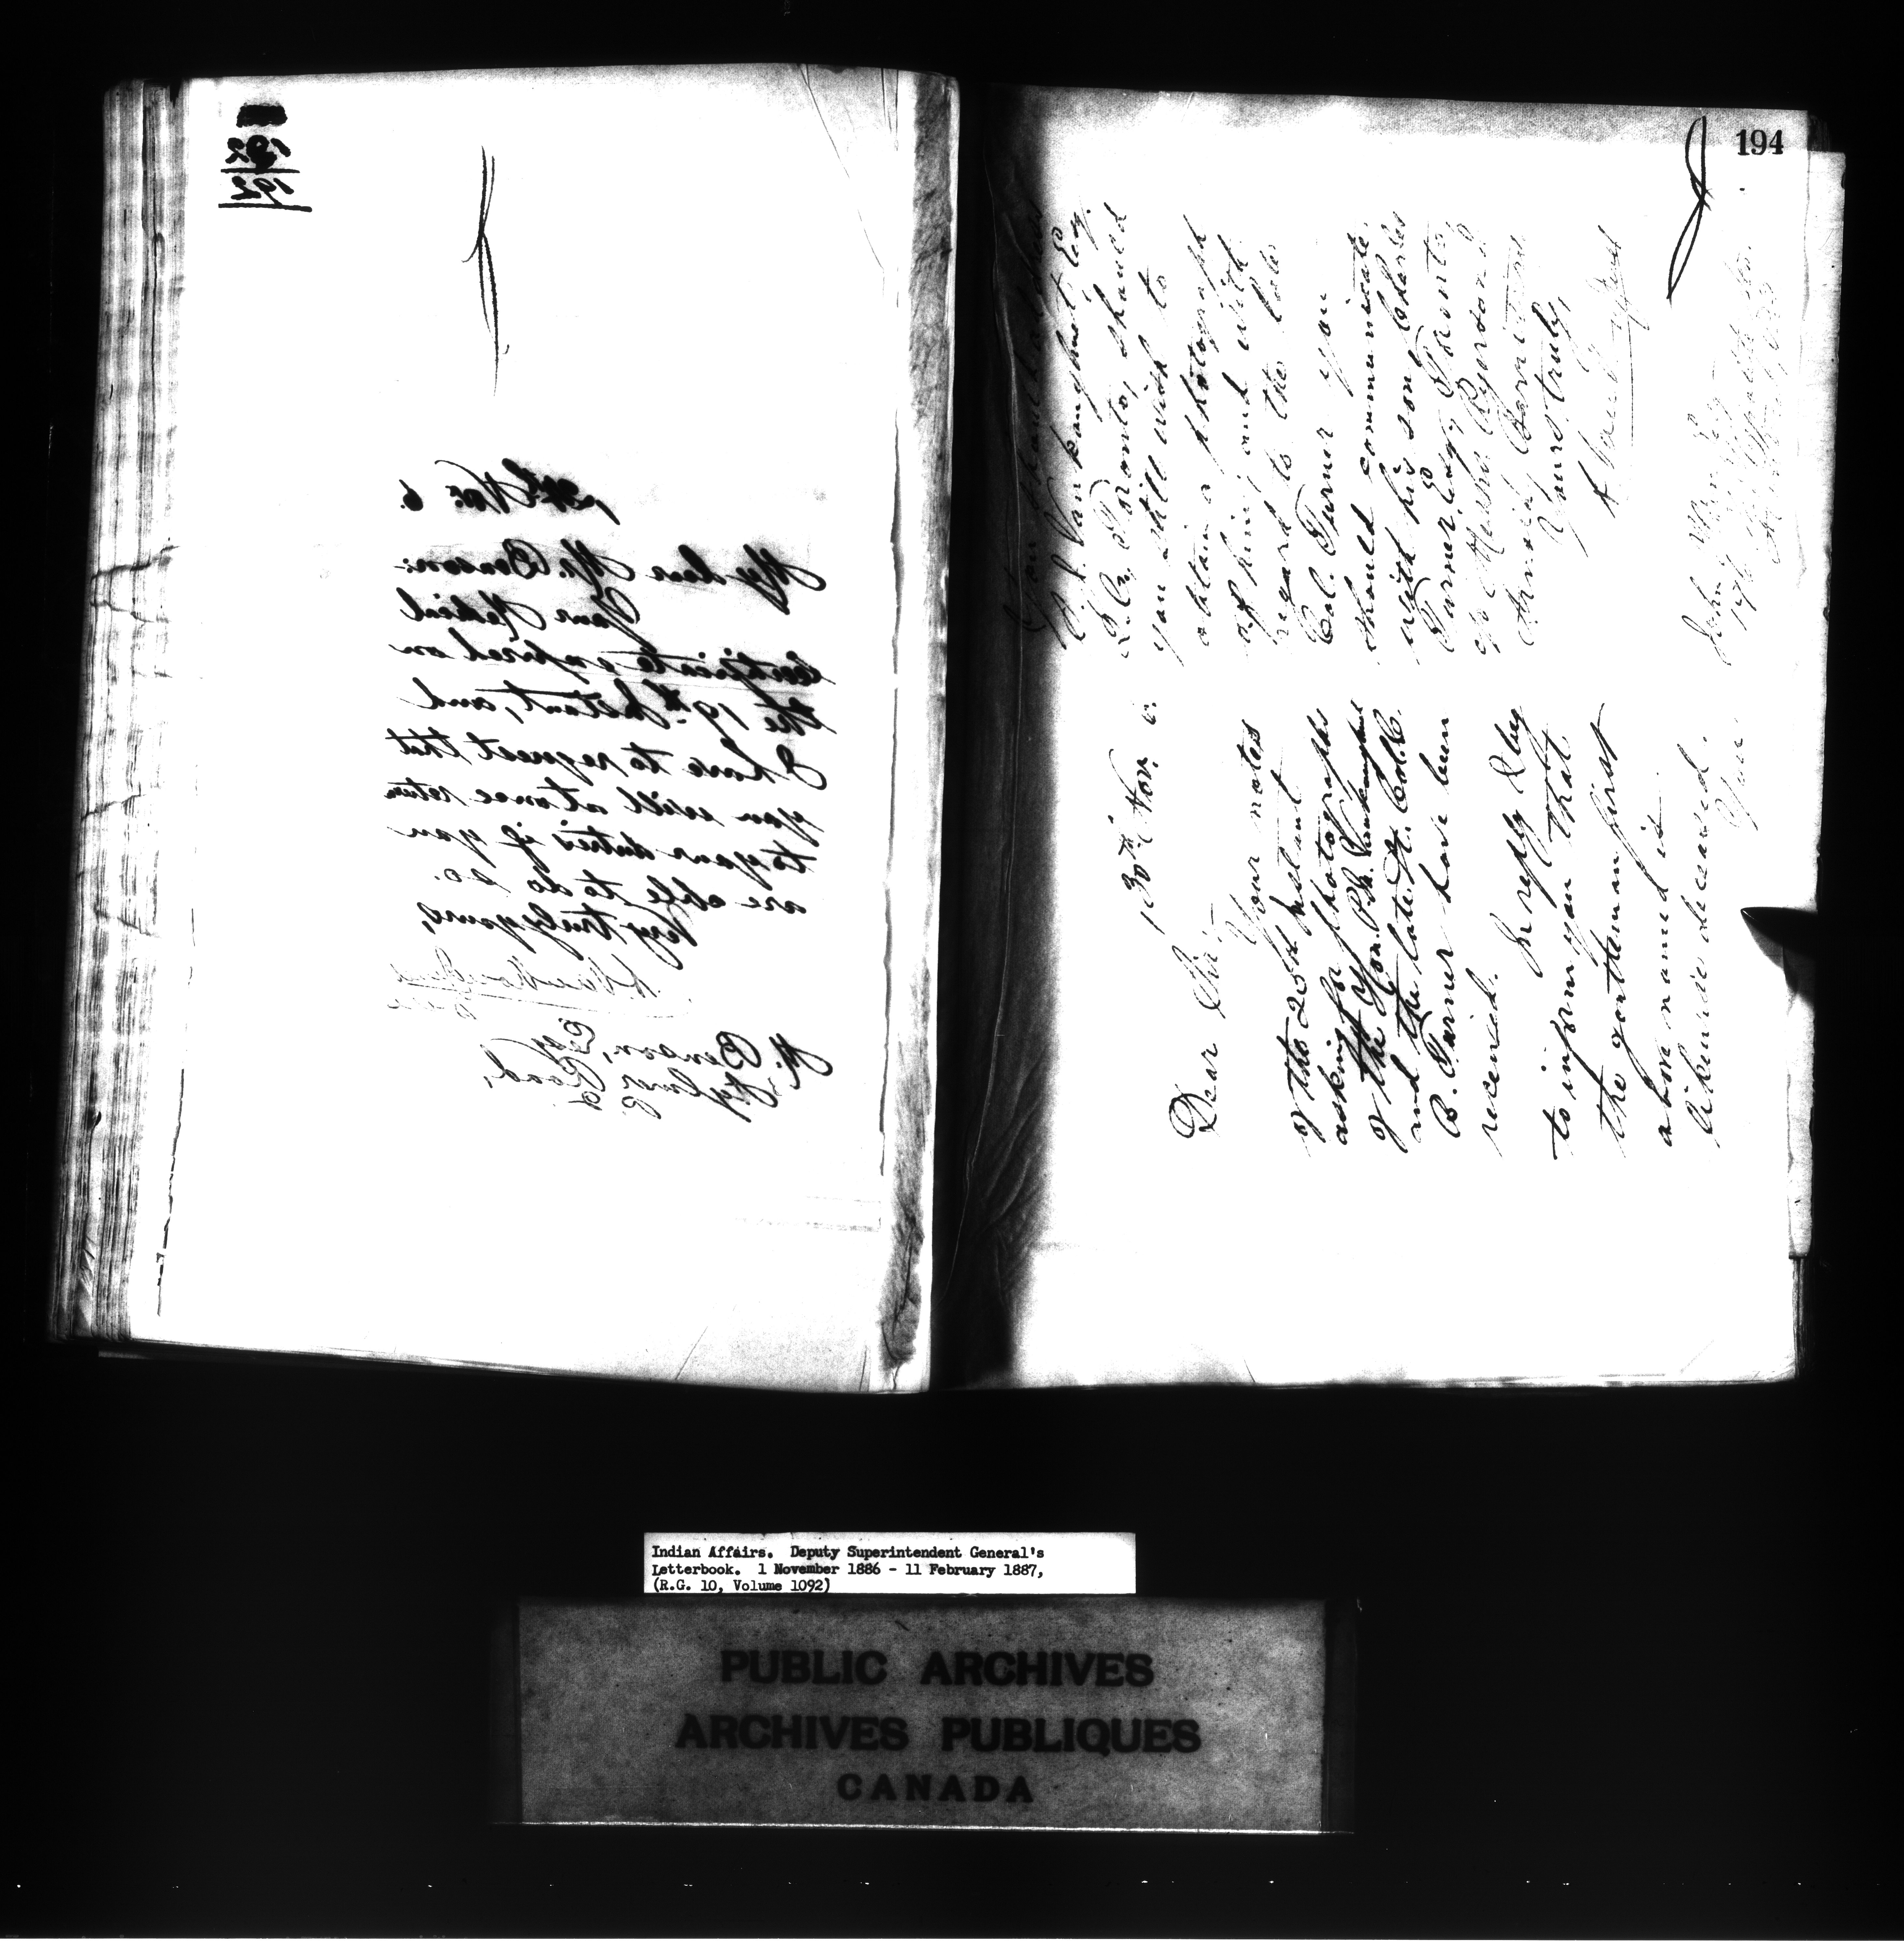 192
192
24th Nov. 6.
My dear Mr. Benson:
Your Medical
Certificate expired on
the 19th Instant, and
I have to request that
you will at once return
to your duties if you
are able to do so.
Very truly yours,
L. Vankoughnet
M. Benson, Esq
Road,
194
30th Nov. 6.
Dear Sir,
Your notes
of the 25th Instant
asking for photographs
of the Hon. P.M. Vankoughnet
and the late Lt. Col. R.
B. Turner have been
received.
In reply I beg
to inform you that
the gentleman first
above named is
likewise deceased.
S. Vankoughnet, Esq.
Q.C., Toronto, should
you still wish to
obtain a photograph
of him; and with
regard to the late
Col. Turner you
should communicate
with his son, Charles
Turner, Esqr., Toronto,
c/o Messrs.
Barristers
Yours truly,
L. Vankoughnet
John
Indian Affairs. Deputy Superintendent General's
Letterbook. 1 November 1886 - 11 February 1887,
(R.G. 10, Volume 1092)
PUBLIC ARCHIVES
ARCHIVES PUBLIQUES
CANADA